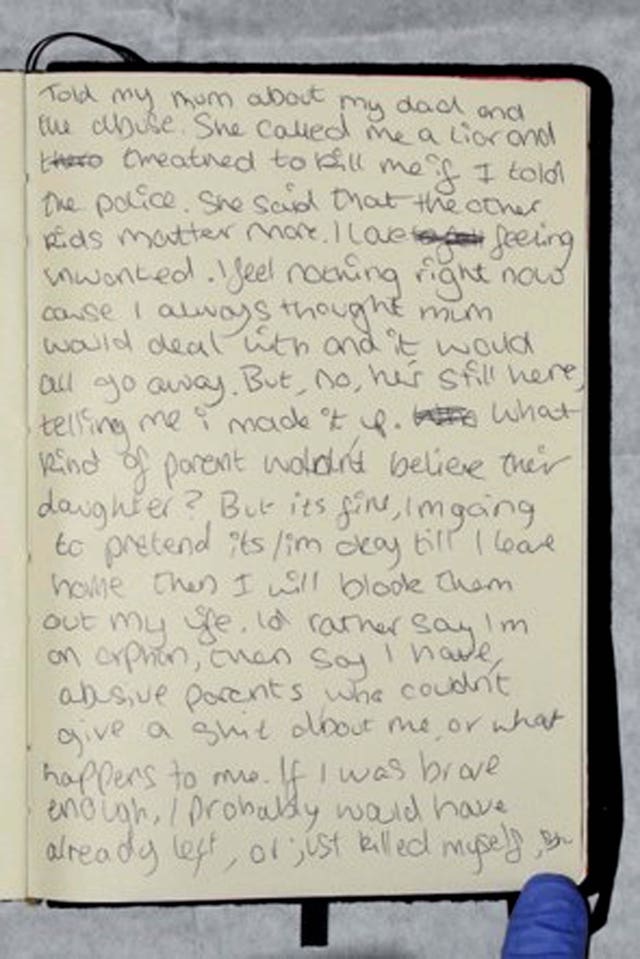 Told my mum about my dad and
the abuse. She called me a liar and
threatned to kill me if I told
the police. She said that the other
kids matter more. I love feeling
unwanted. I feel nothing right now
cause I always thought mum
would deal with and it would
all go away. But, no, he's still here,
telling me i made it up. What
kind of parent wouldn't believe their
daughter? But its fine, Im going
to pretend its/im okay till I leave
home then I will block them
out my life. I'd rather say Im
an orphan, then say I have,
abusive parents who couldn't
give a shit about me, or what
happens to me. If I was brave
enough, I probably would have
already left, or just killed myself,